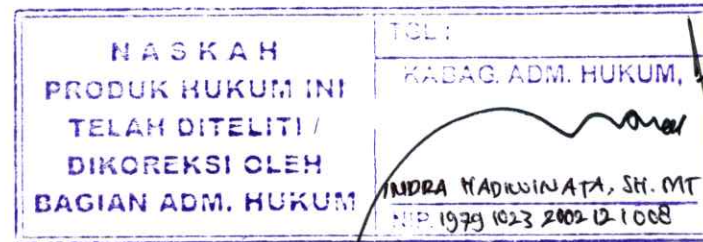 NASKAH
PRODUK HUKUM INI
TELAH DITELITI /
DIKOREKSI OLEH
BAGIAN ADM. HUKUM
TGL :
KABAG. ADM. HUKUM,
INDRA HADIWINATA, SH. MT
NIP. 19791023 2002 12 1 008